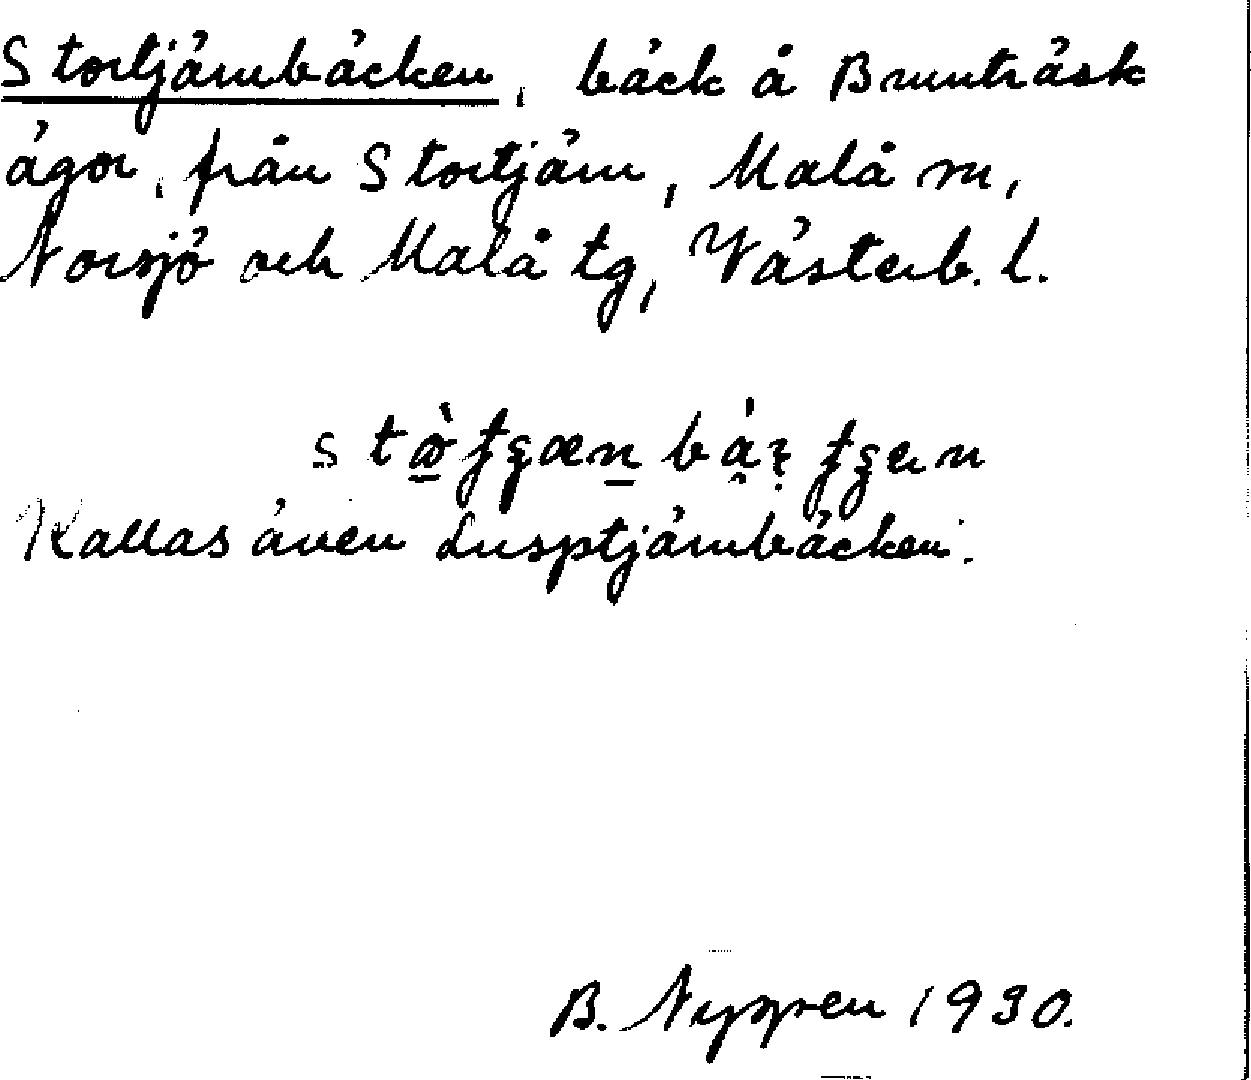 Stortjärnbäcken, bäck å Brunträsk
ägor, från Stortjärn, Malå sn,
Norsjö och Malå tg, Västerb. l.
Kallas även Lusptjärnbäcken.
B. 1930.